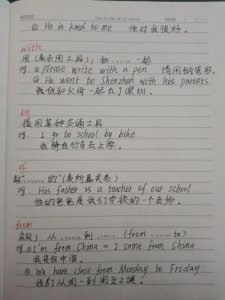 NOTES
DATE
② He is kind to me 他对我很好。
with
用(表示用工具),和……一起
例 ① please write with a pen 请用钢笔写。
② He went to Shenzhen with his parents.
我他和父母一起去了深圳。
by
指用某种交通工具
例 I go to school by bike
我骑自行车去上学。
of
……的"(表所属关系)
例 His father is a teacher of our school.
他的爸爸是我们学校的一个老师。
from
来自,从……到……(from……to)
例 ① I'm from China = I come from China
我来自中国。
② We have class from Monday to Friday.
我们从周一到周五上课。